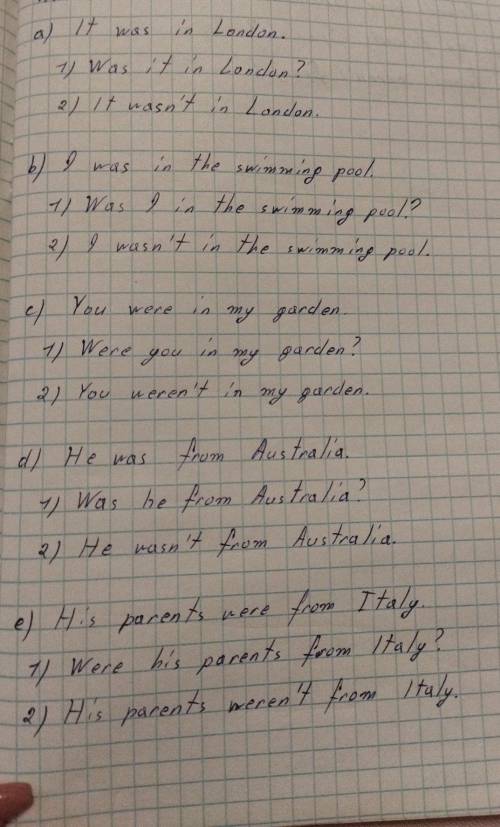 a) It was in London.
1) Was it in London?
2) It wasn't in London.
b) I was in the swimming pool.
1) Was I in the swimming pool?
2) I wasn't in the swimming pool.
c) You were in my garden.
1) Were you in my garden?
2) You weren't in my garden.
d) He was from Australia.
1) Was he from Australia?
2) He wasn't from Australia.
e) His parents were from Italy.
1) Were his parents from Italy?
2) His parents weren't from Italy.